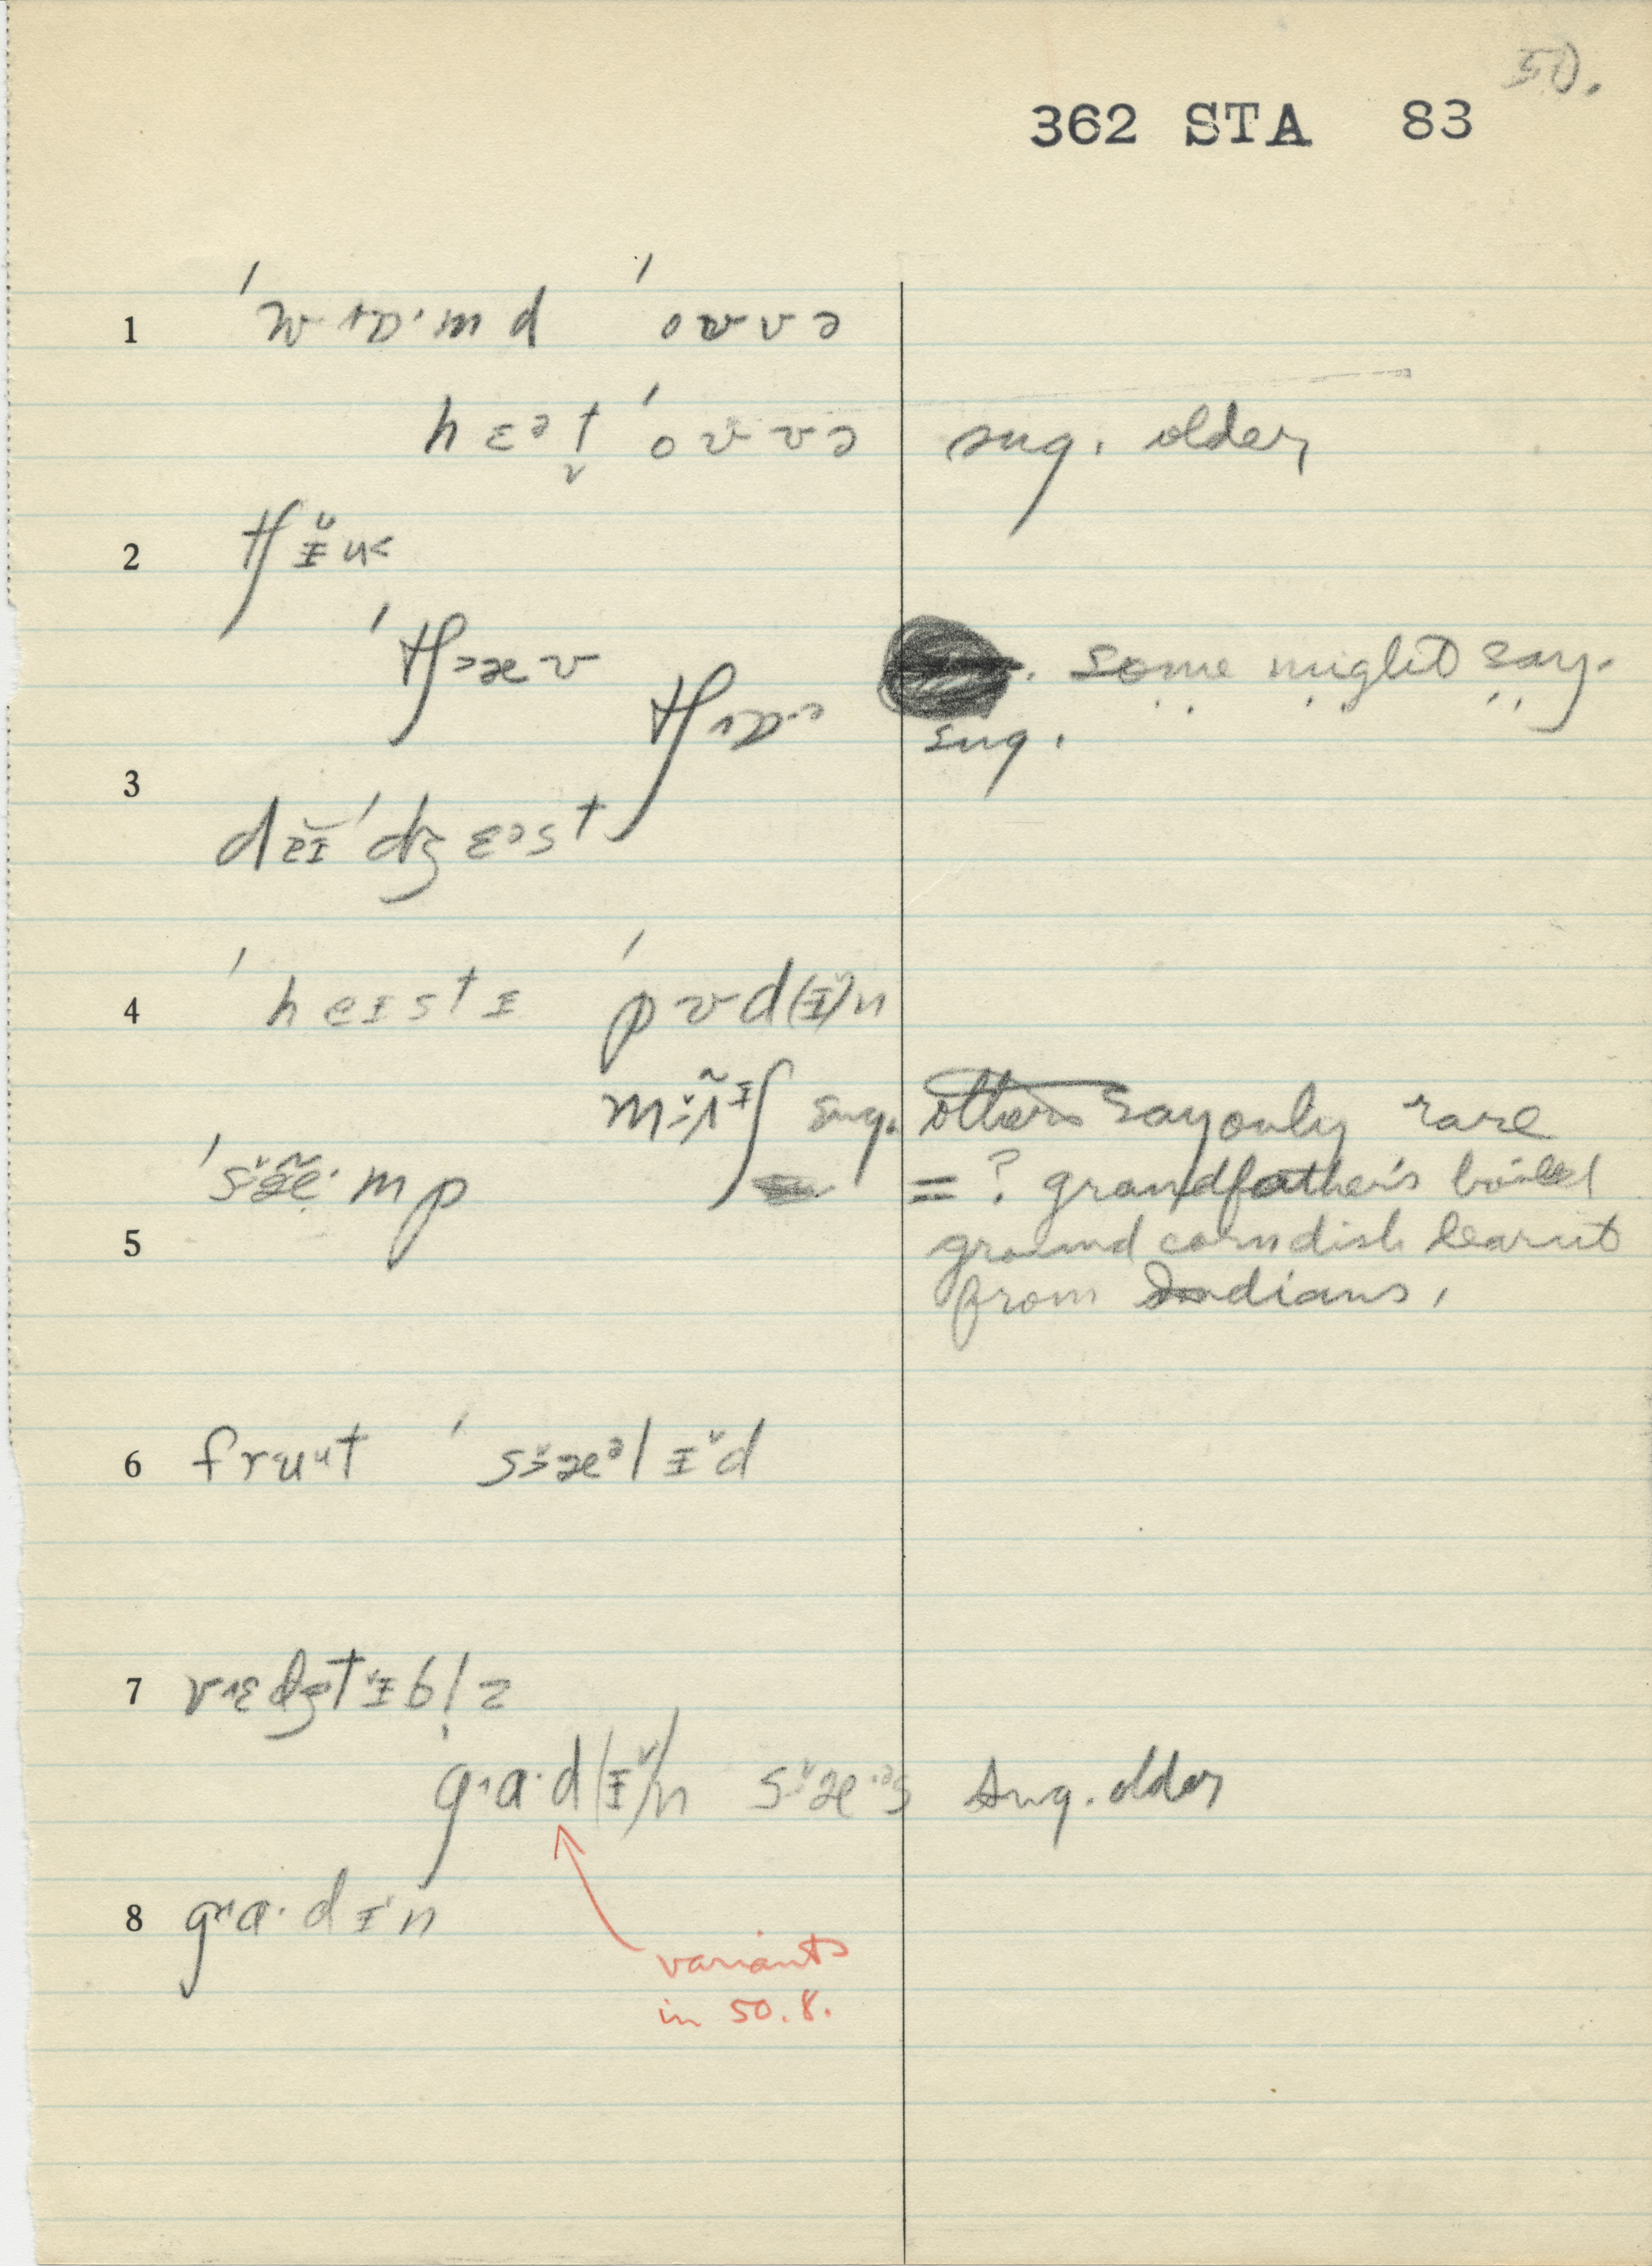 50.
362 STA 83
1 ˈwɒ·md ˈoʊvə
hɛᵊt ˈoʊvə sug. older
2 tʃɪ̆u<
ˈtʃæʊ . some might say.
tʃɒ·ə sug.
3 ˈdʒɛəst
4 ˈheɪstɪ ˈpʊd(ɪ̆)n
sug. others say only rare
= ? grandfather's boiled
5 ground corn dish learnt
from Indians.
6 fruᵘt ˈsæᵊlɪ̆d
7 vɛdʒtɪ̆bl̩z
gɑ·d(ɪ̆)n sæ·ᵊs sug. older
8 gɑ·dɪn
variants
in 50.8.